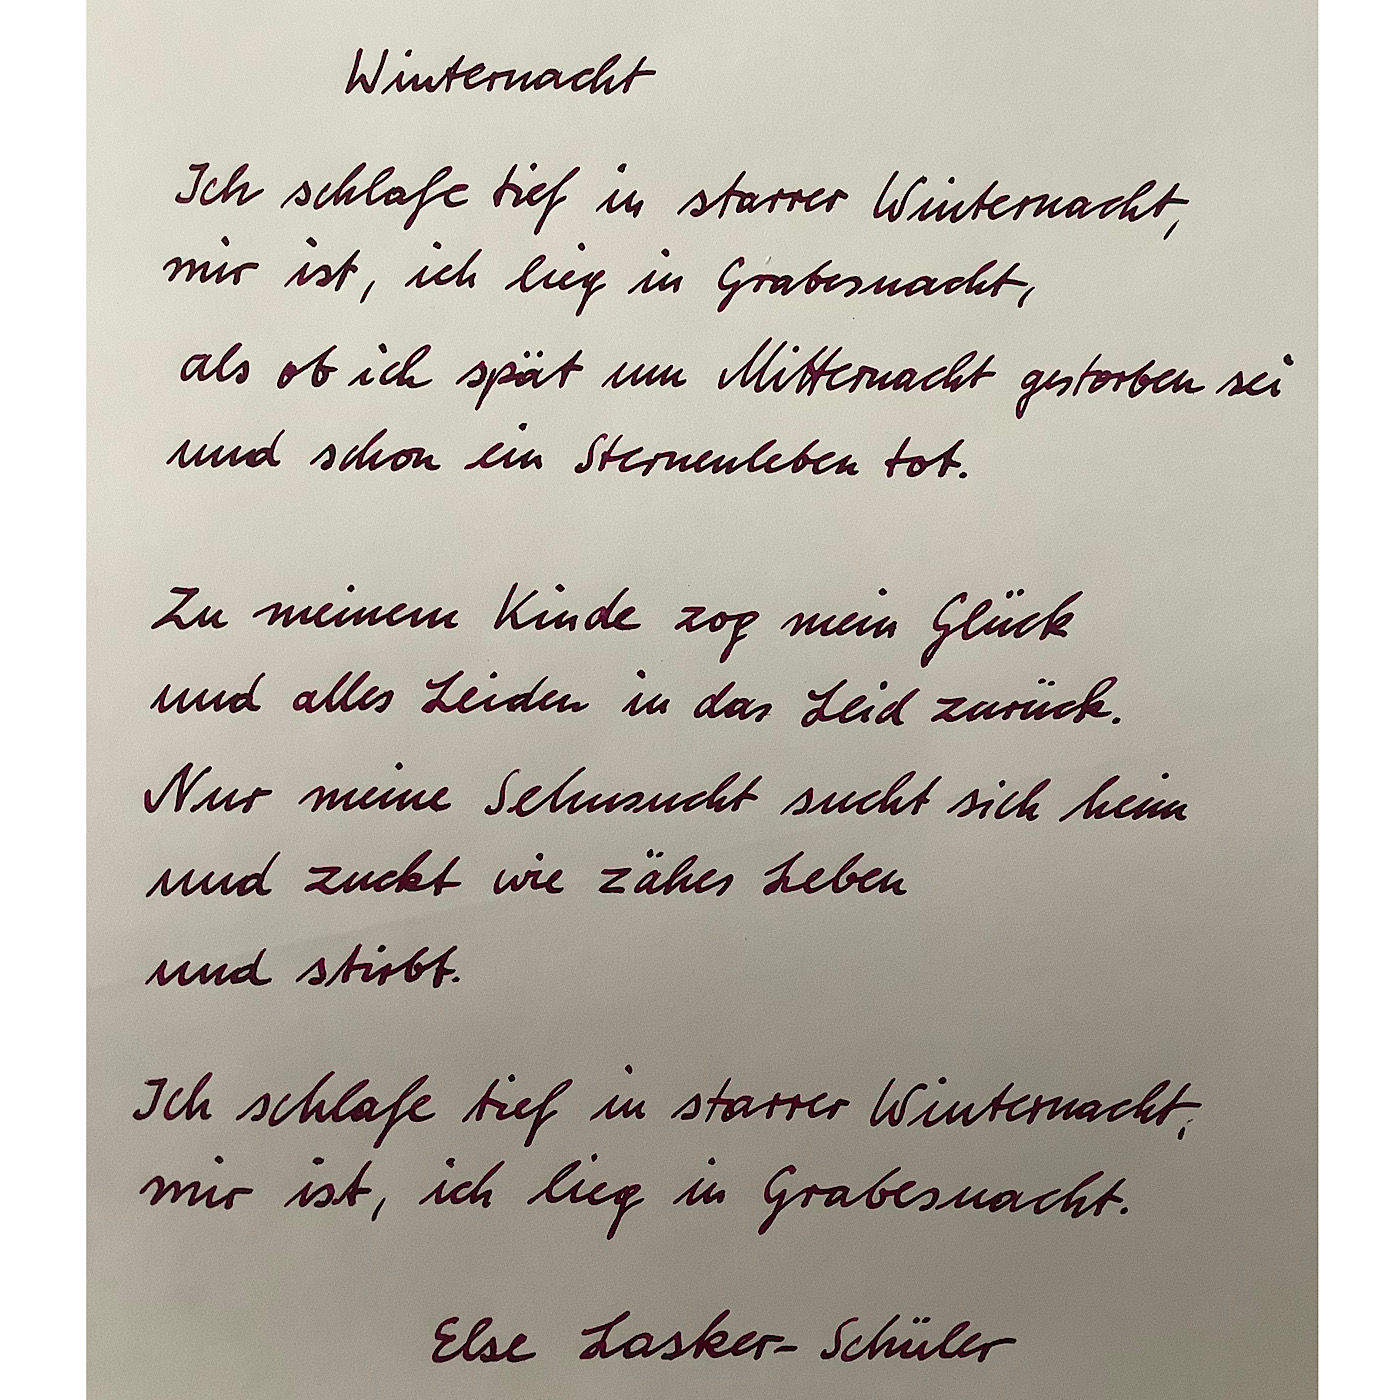 Winternacht
Ich schlafe tief in starrer Winternacht,
mir ist, ich lieg in Grabesnacht,
als ob ich spät um Mitternacht gestorben sei
und schon ein Sternenleben tot.
Zu meinem Kinde zog mein Glück
und alles Leiden in das Leid zurück.
Nur meine Sehnsucht sucht sich heim
und zuckt wie zähes Leben
und stirbt.
Ich schlafe tief in starrer Winternacht,
mir ist, ich lieg in Grabesnacht.
Else Lasker-Schüler